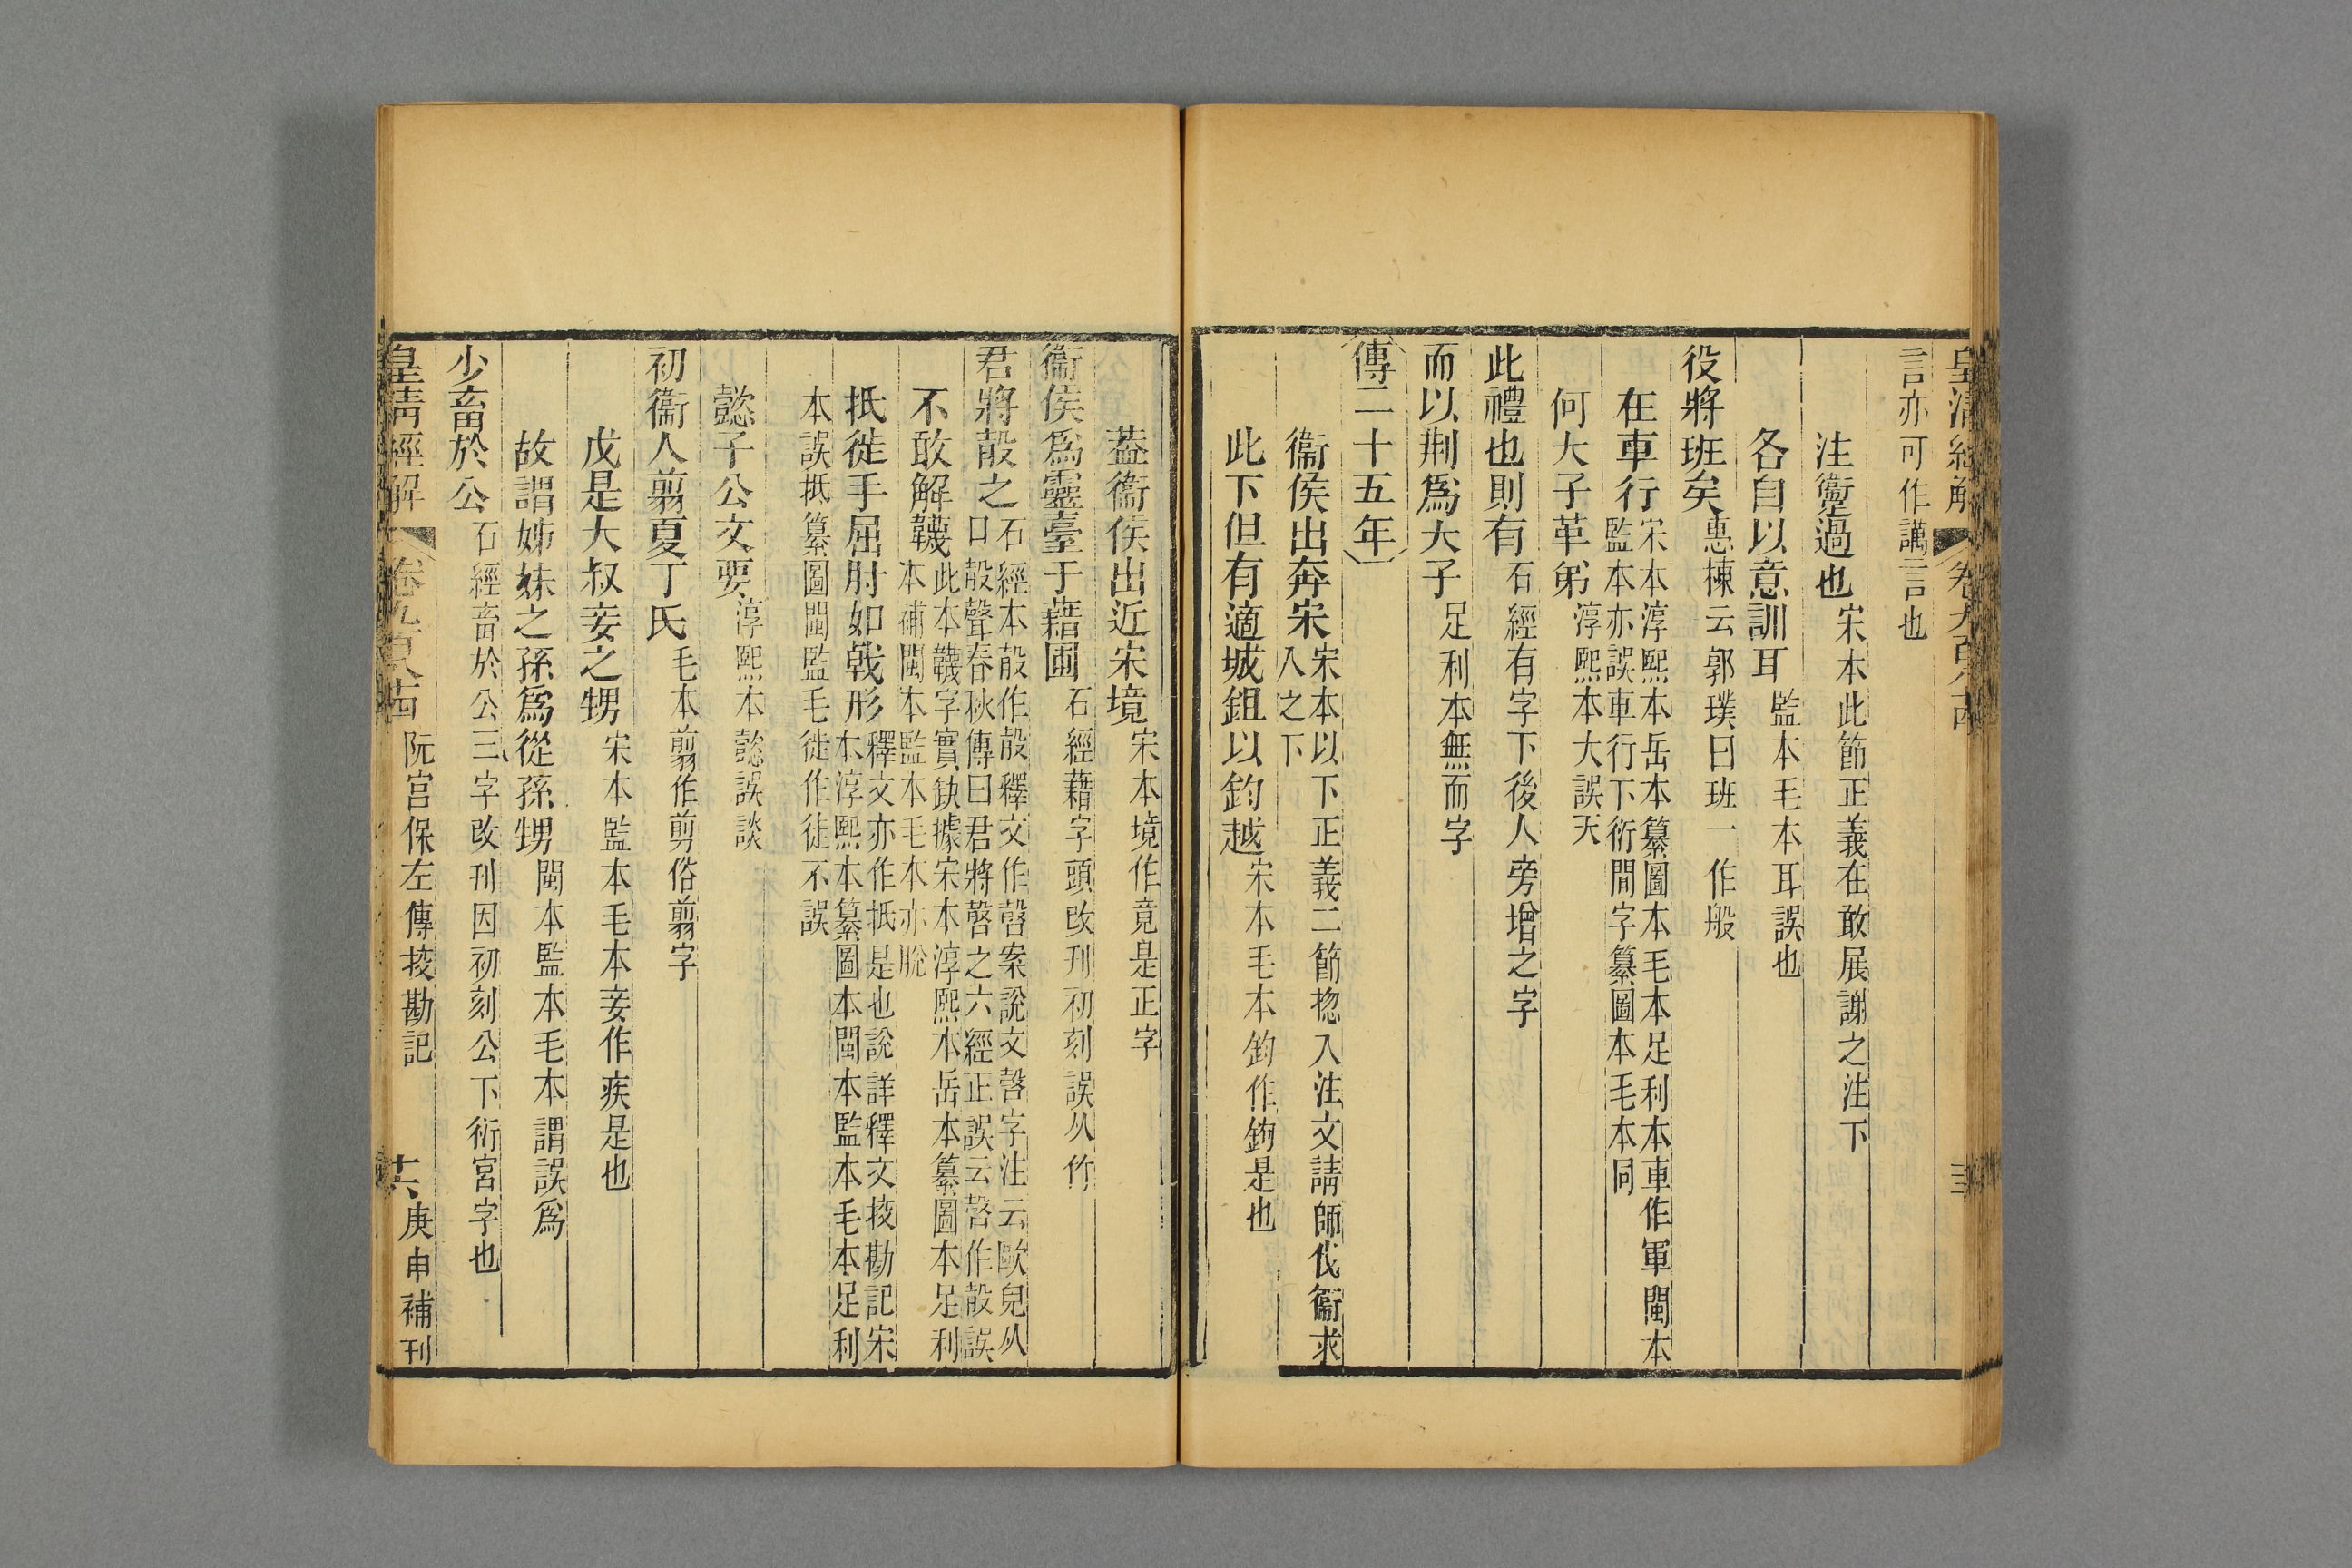 皇清經解 卷九百八十四
言亦可作讆言也
注讆過也宋本此節正義在敢展謝之注下
各自以意訓耳監本毛本耳誤也
役將班矣惠棟云郭璞曰班一作般
在車行宋本淳熙本岳本纂圖本毛本足利本車作軍閩本
監本亦誤車行下衍閒字纂圖本毛本同
何大子革弟淳熙本大誤天
此禮也則有石經有字下後人旁增之字
而以荆爲大子足利本無而字
傳二十五年
衞侯出奔宋宋本以下正義二節揔入注文請師伐衞求
入之下
此下但有適城鉏以釣越宋本毛本釣作鉤是也
蓋衞侯出近宋境宋本境作竟是正字
衞侯爲靈臺于藉圃石經藉字頭改刊初刻誤从竹
君將㱿之石經本㱿作㱿釋文作䏿案說文䏿字注云歐皃从
口㱿聲春秋傳曰君將䏿之六經正誤云䏿作㱿誤
不敢解韤此本韤字實缺據宋本淳熙本岳本纂圖本足利
本補閩本監本毛本亦脫
抵徙手屈肘如戟形釋文亦作抵是也說詳釋文挍勘記宋
本淳熙本纂圖本閩本監本毛本足利
本誤抵纂圖閩監毛徙作徒不誤
懿子公文要淳熙本懿誤談
初衞人翦夏丁氏毛本翦作剪俗翦字
戊是大叔妾之甥宋本監本毛本妾作疾是也
故謂姊妹之孫爲從孫甥閩本監本毛本謂誤爲
少畜於公石經畜於公三字改刊因初刻公下衍宮字也
皇清經解 卷九百八十四 阮宫保左傳挍勘記 十六 庚申補刊